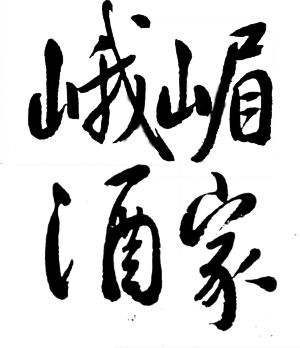 峨嵋
酒家